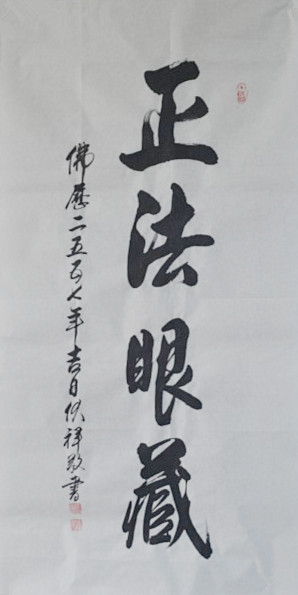 正法眼藏
佛曆二五五七年吉日 祥敬書